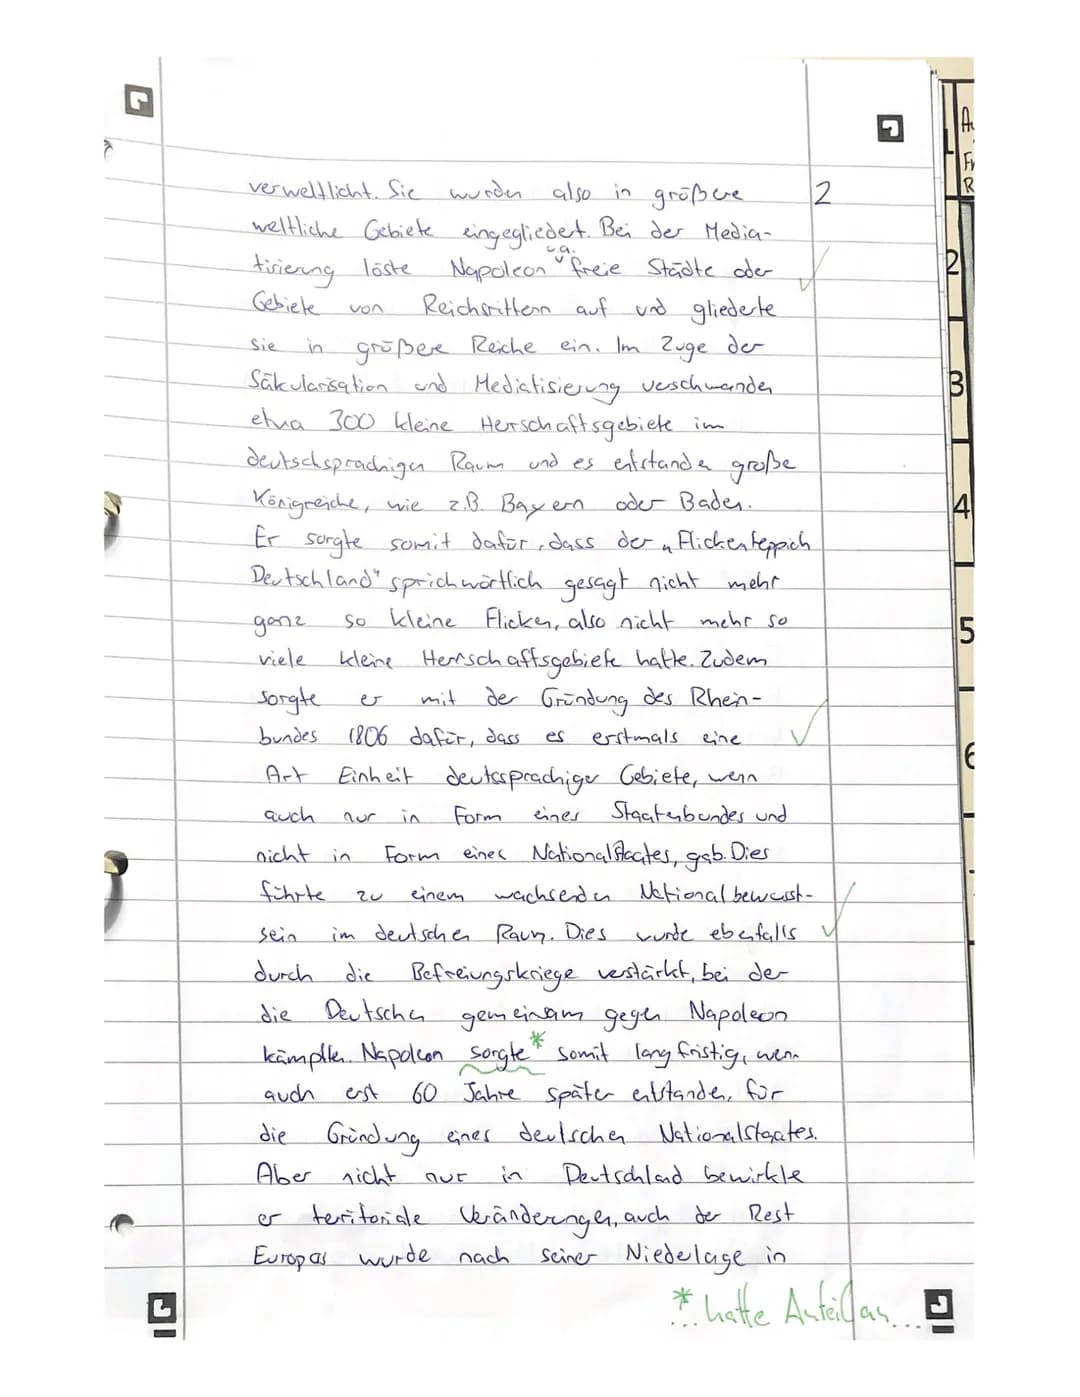 verweltlicht. Sie wurden also in größere
2
weltliche Gebiete eingegliedert. Bei der Media-
u.a.
tisierung löste Napoleon freie Städte oder
Gebiete von Reichsrittern auf und gliederte
sie in größere Reiche ein. Im Zuge der
Säkularisation und Mediatisierung verschwanden
etwa 300 kleine Herrschaftsgebiete im
deutschsprachigen Raum und es entstanden große
Königreiche, wie z.B. Bayern oder Baden.
Er sorgte somit dafür, dass der „Flickenteppich
Deutschland" sprichwörtlich gesagt nicht mehr
ganz so kleine Flicken, also nicht mehr so
viele kleine Herrschaftsgebiete hatte. Zudem
sorgte er mit der Gründung des Rhein-
bundes 1806 dafür, dass es erstmals eine
Art Einheit deutssprachiger Gebiete, wenn
auch nur in Form eines Staatenbundes und
nicht in Form eines Nationalstaates, gab. Dies
führte zu einem wachsenden Nationalbewusst-
sein im deutschen Raum. Dies wurde ebenfalls
durch die Befreiungskriege verstärkt, bei der
die Deutschen gemeinsam gegen Napoleon
kämpften. Napoleon sorgte* somit langfristig, wenn
auch erst 60 Jahre später entstanden, für
die Gründung eines deutschen Nationalstaates.
Aber nicht nur in Deutschland bewirkte
er teritoriale Veränderungen, auch der Rest
Europas wurde nach seiner Niederlage in
* ...hatte Anteil an...
A
Fr
R
2
3
4
5
6